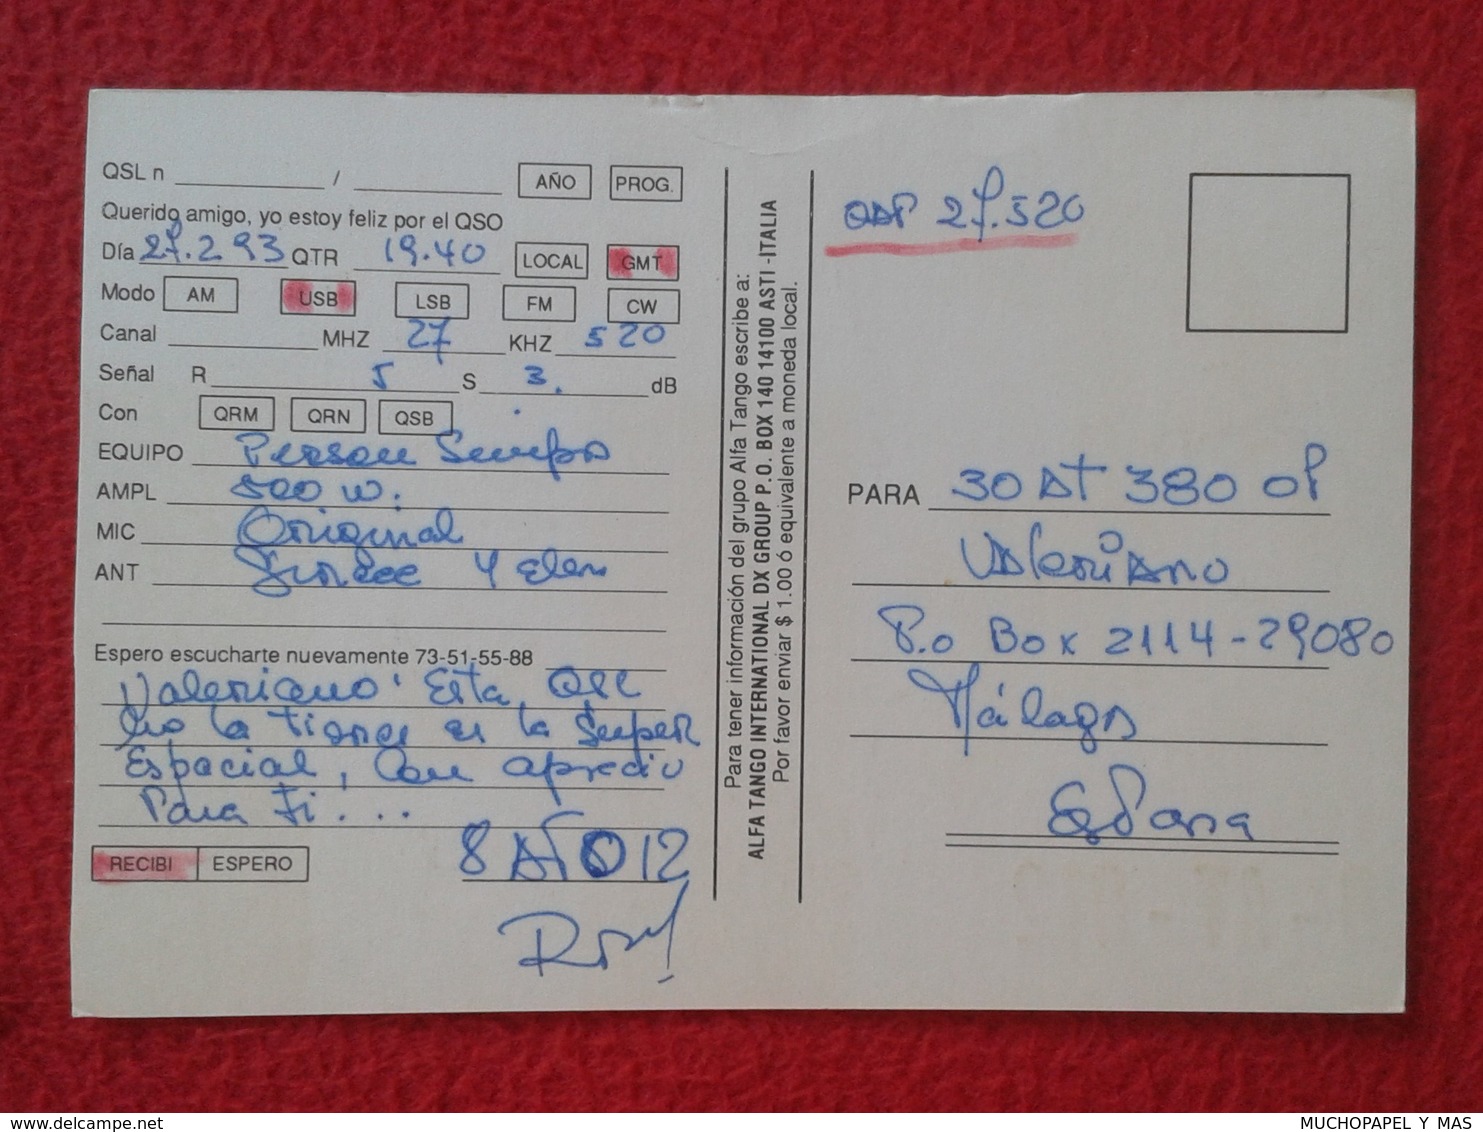 QSL n / AÑO PROG.
Querido amigo, yo estoy feliz por el QSO
Día 27.2.93 QTR 19.40 LOCAL GMT
Modo AM USB LSB FM CW
Canal MHZ 27 KHZ 520
Señal R 5 S 3. dB
Con QRM QRN QSB
EQUIPO
AMPL 500 w.
MIC Original
ANT 4 elem
Espero escucharte nuevamente 73-51-55-88
Valeriano: Esta QSL
No la tienes es la Super
Espacial, Con aprecio
Para ti...
RECIBI ESPERO
8 AT 012
Para tener información del grupo Alfa Tango escribe a:
ALFA TANGO INTERNATIONAL DX GROUP P.O. BOX 140 14100 ASTI -ITALIA
Por favor enviar $ 1.00 ó equivalente a moneda local.
27.520
PARA 30 AT 380 OP
Valeriano
P.o Box 2114-29080
Málaga
España
MUCHOPAPEL Y MAS